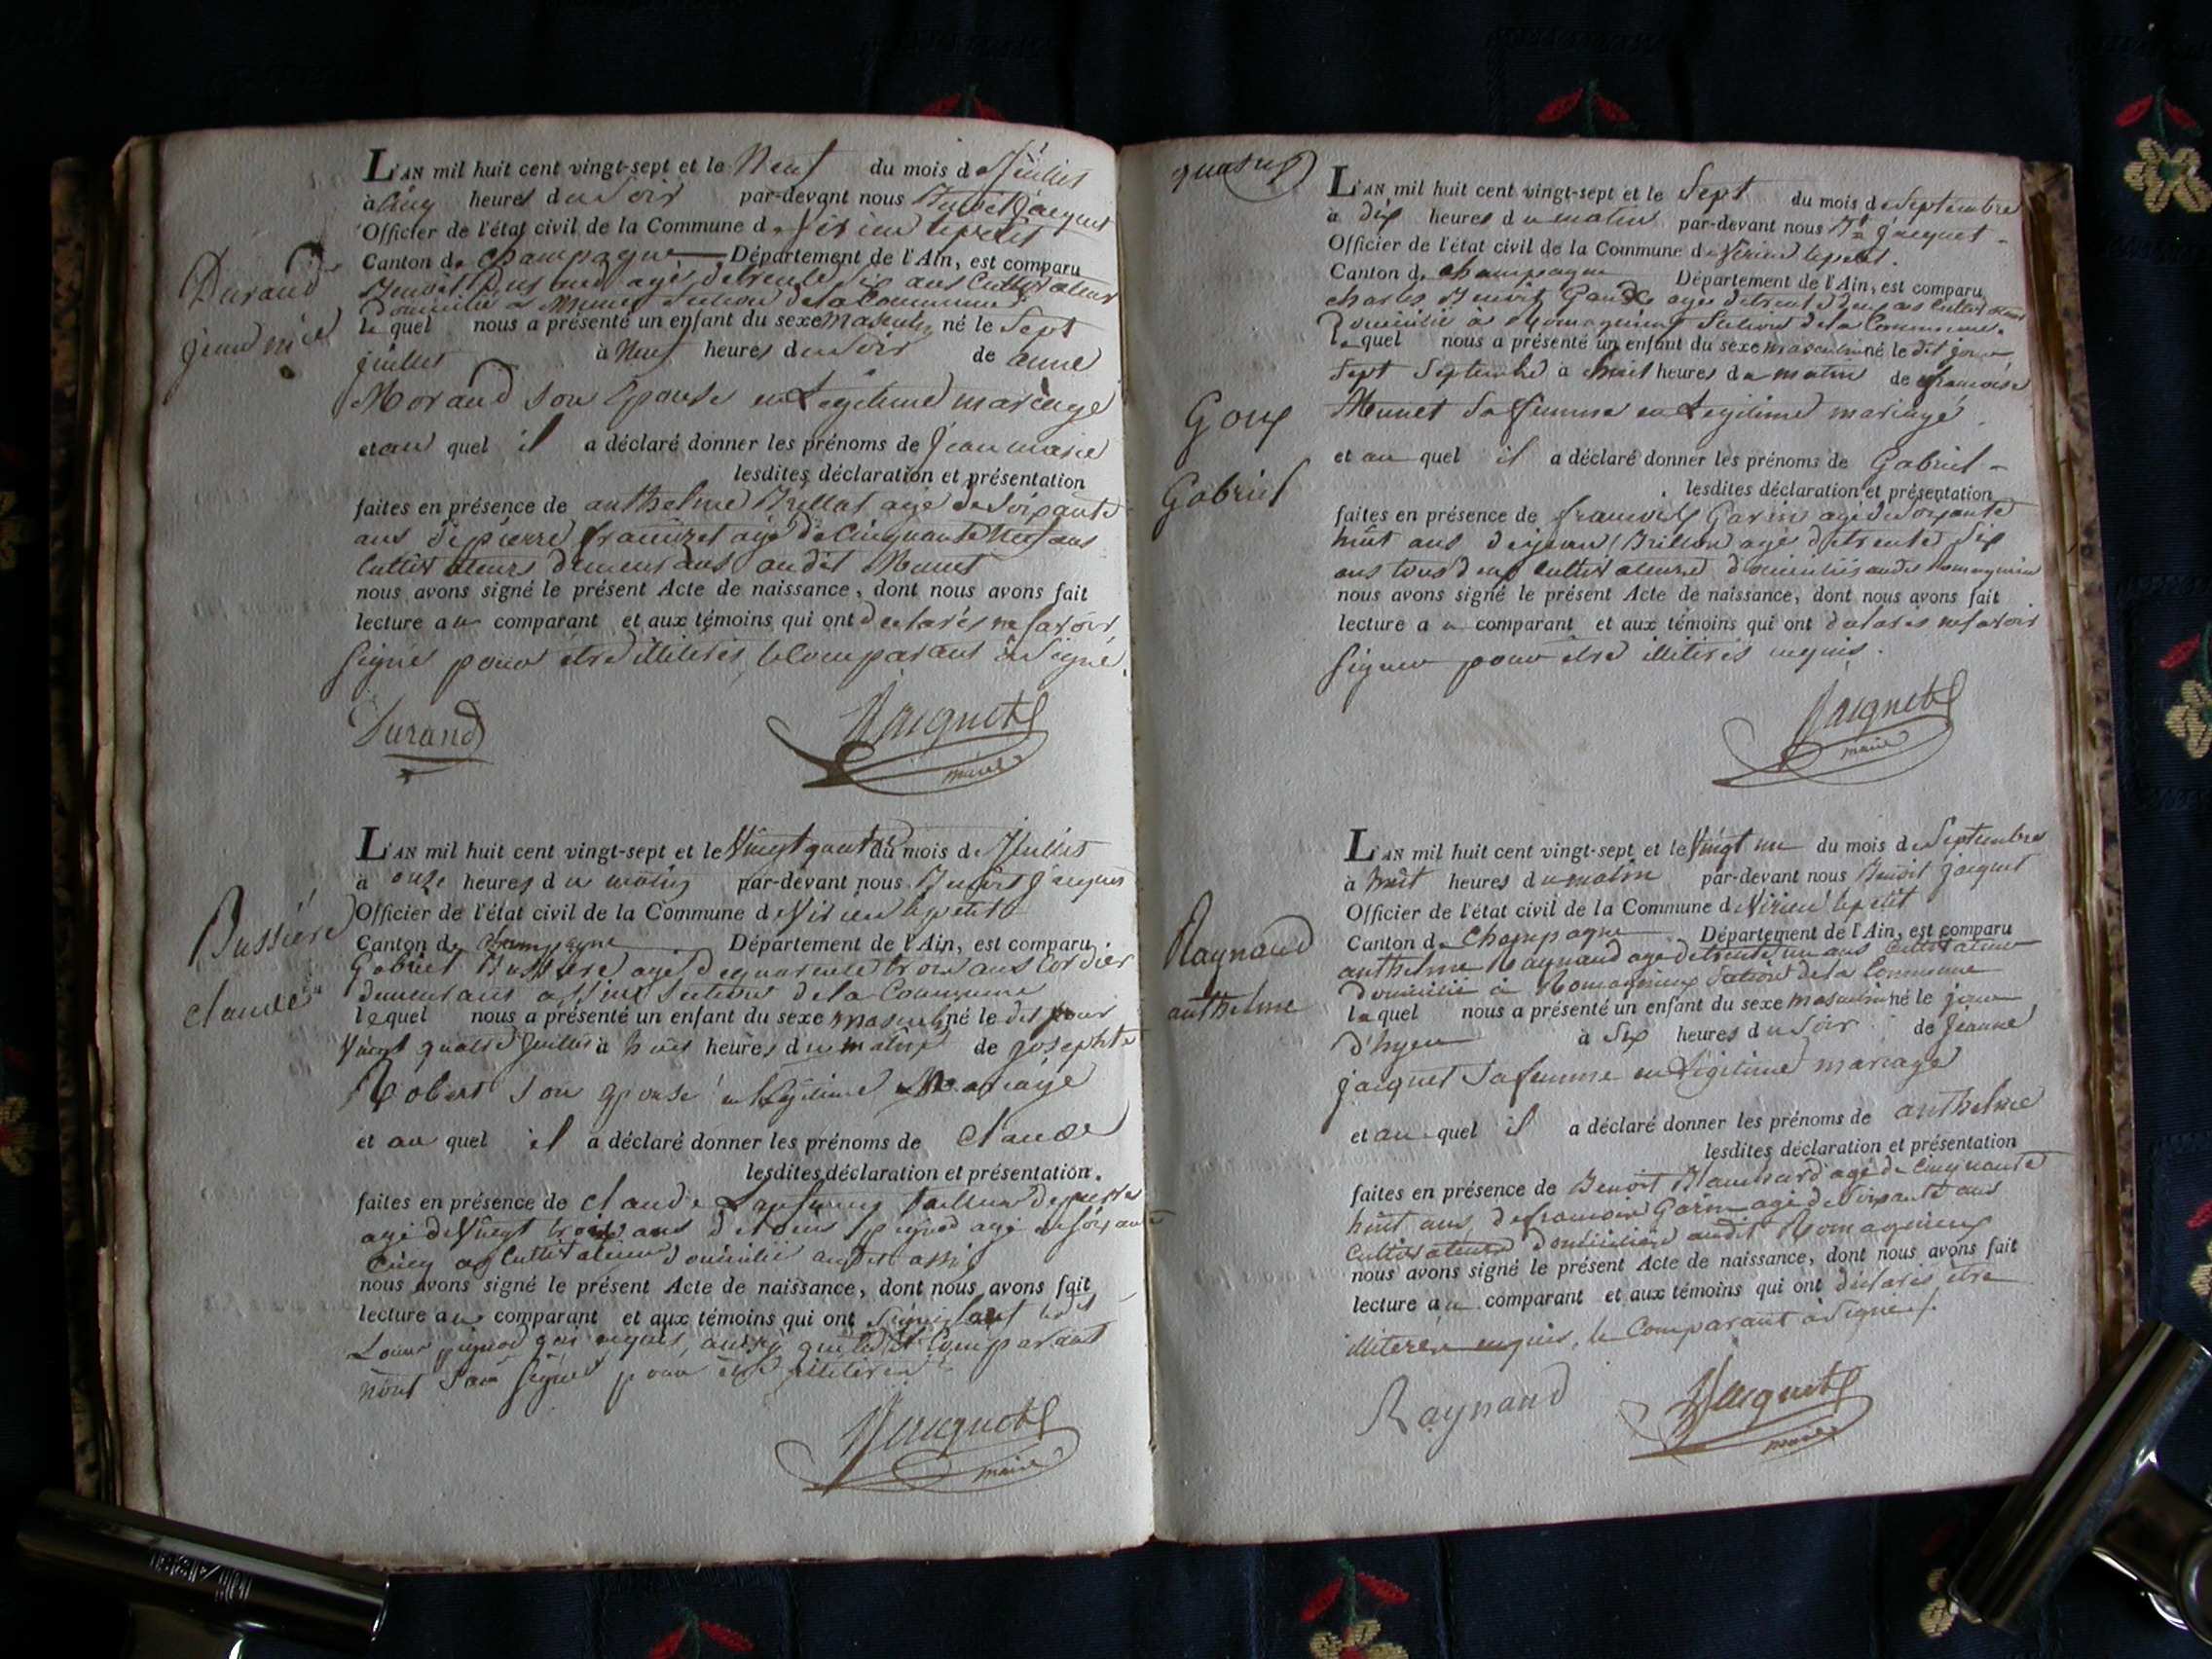 L'AN mil huit cent vingt-sept et le Neuf du mois de Juillet
à Cinq heures du Soir par-devant nous Benoit Jacquet
Officier de l'état civil de la Commune de Virieu le petit
Canton de Champagne Département de l'Ain, est comparu
Benoit Durand agé de trente six ans Cultivateur
Domicilié à Munet Section de la Commune
lequel nous a présenté un enfant du sexe masculin né le Sept
juillet à Neuf heures du Soir de anne
Morand son Epouse en Légitime mariage
et au quel il a déclaré donner les prénoms de Jean marie
lesdites déclaration et présentation
faites en présence de anthelme Brillat agé de Soixante
ans & de pierre agé de Cinquante Neuf ans
Cultivateurs demeurans audit Munet
nous avons signé le présent Acte de naissance, dont nous avons fait
lecture au comparant et aux témoins qui ont declarés ne savoir
signé pour être illiterés, le Comparant a Signé.
Durand
jean mie
Durand
BJacquet
maire
L'AN mil huit cent vingt-sept et le Vingt quatre du mois de Juillet
à onze heures du matin par-devant nous Benoit Jacquet
Officier de l'état civil de la Commune de Virieu le petit
Canton de Champagne Département de l'Ain, est comparu
Gabriel Bussiere agé de quarente trois ans Cordier
demeurant assin Section de la Commune
lequel nous a présenté un enfant du sexe masculin né le dit jour
Vingt quatre Juillet à huit heures du matin de Josephte
Robert son Epouse en Légitime Mariage
et au quel il a déclaré donner les prénoms de Claude
lesdites déclaration et présentation.
faites en présence de Claude tailleur de pierre
agé de Vingt trois ans & de Louis pignod agé de soixante
Cinq ans Cultivateur Domicilié audit assin
nous avons signé le présent Acte de naissance, dont nous avons fait
lecture au comparant et aux témoins qui ont Signé sauf ledit
Louis pignod qui requis, ainsi que ledit Comparant
n'ont Signer pour être illiteré
Bussiére
claude
BJacquet
maire
L'AN mil huit cent vingt-sept et le Sept du mois de Septembre
à dix heures du matin par-devant nous Bt Jacquet
Officier de l'état civil de la Commune de Virieu le petit.
Canton de Champagne Département de l'Ain, est comparu
Charles Benoit Goux agé de trente deux ans Cultivateur
Domicilié à Romagnieux Section de la Commune.
lequel nous a présenté un enfant du sexe masculin né le dit jour
Sept Septembre à huit heures du matin de francoise
Munet Sa femme en Legitime mariage
et au quel il a déclaré donner les prénoms de Gabriel
lesdites déclaration et présentation
faites en présence de francois Garin agé de Soixante
huit ans & de jean Brillon agé de trente Six
ans tous deux Cultivateurs domiciliés audit Romagnieu
nous avons signé le présent Acte de naissance, dont nous avons fait
lecture au comparant et aux témoins qui ont déclarés ne savoir
signer pour être illiterés requis.
Goux
Gabriel
Jacquet
maire
L'AN mil huit cent vingt-sept et le Vingt un du mois de Septembre
à huit heures du matin par-devant nous Benoit Jacquet
Officier de l'état civil de la Commune de Virieu le petit
Canton de Champagne Département de l'Ain, est comparu
anthelme Raynaud agé de trente un ans Cultivateur
Domicilié à Romagnieux Section de la Commune
lequel nous a présenté un enfant du sexe masculin né le jour
d'hyer à Six heures du Soir de Jeanne
Jacquet Sa femme en Légitime mariage
et au quel il a déclaré donner les prénoms de anthelme
lesdites déclaration et présentation
faites en présence de Benoit Blanchard agé de Cinquante
huit ans, & de francois Garin agé de Soixante ans
Cultivateurs domiciliers audit Romagnieux
nous avons signé le présent Acte de naissance, dont nous avons fait
lecture au comparant et aux témoins qui ont déclarés être
illiteres requis, le Comparant a Signé.
Raynaud
anthelme
Raynaud
BJacquet
maire